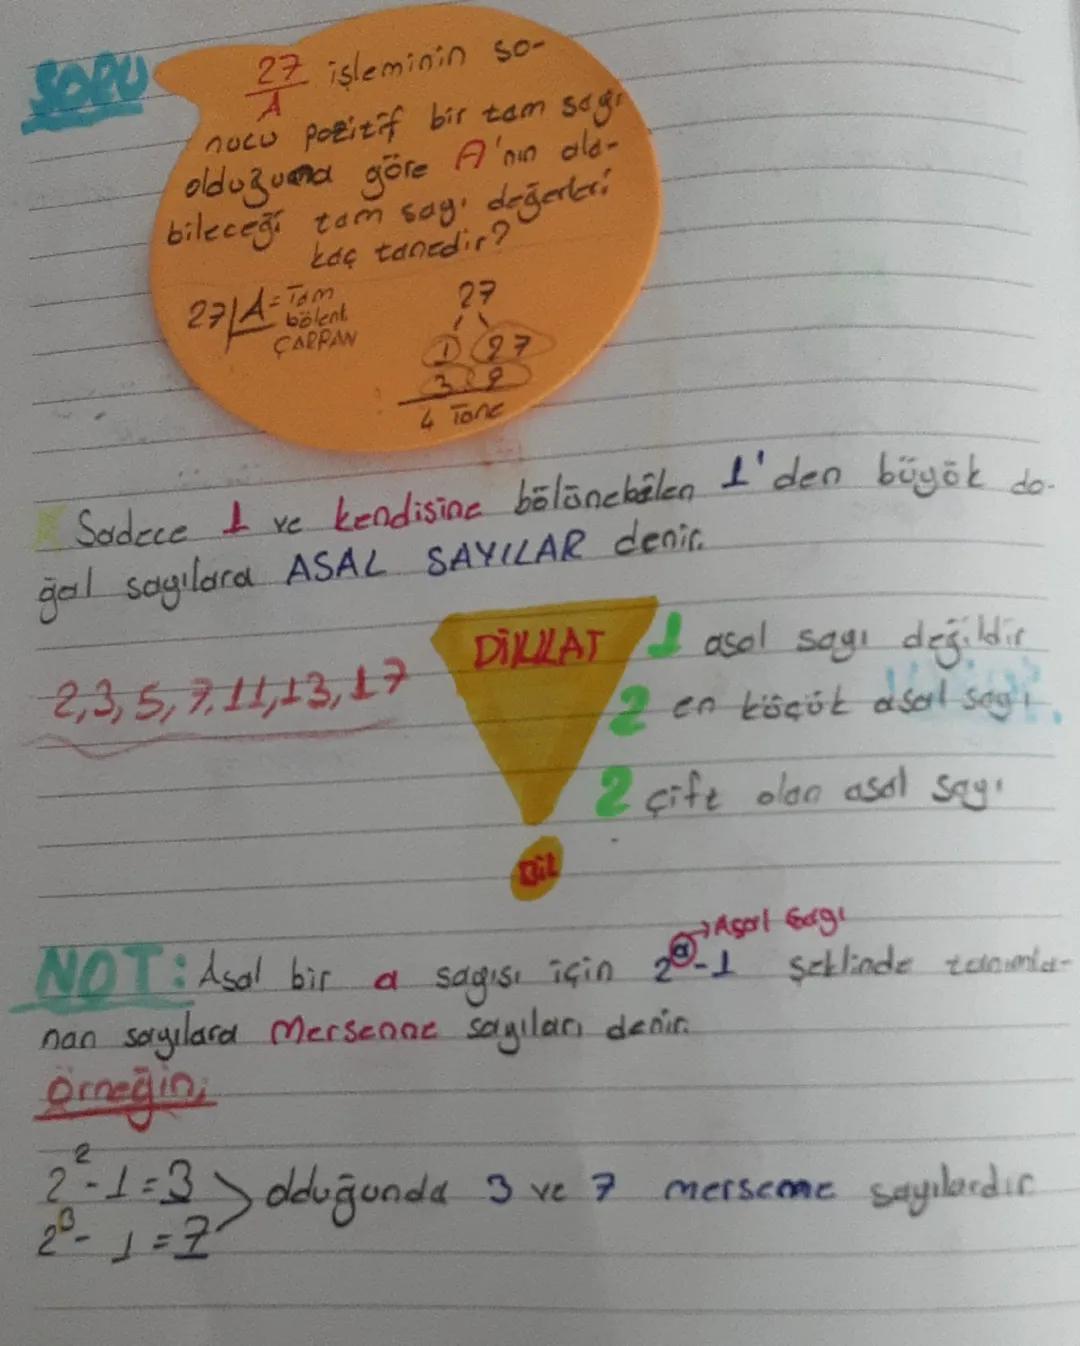 SORU
27/A işleminin so-
nucu pozitif bir tam sayı
olduğuna göre A'nın ala-
bileceği tam sayı değerleri
kaç tanedir?
27 | A = Tam
bölent
ÇARPAN
27
1 27
3 9
4 Tane
Sadece 1 ve kendisine bölünebilen 1'den büyük do-
ğal sayılara ASAL SAYILAR denir.
2, 3, 5, 7, 11, 13, 17
DİKKAT
1 asal sayı değildir
2 en küçük asal sayı.
2 çift olan asal sayı
Bil
→ Asal Sayı
NOT: Asal bir a sayısı için 2ᵃ-1 şeklinde tanımla-
nan sayılara Mersenne sayıları denir.
Örneğin;
2²-1=3
2³-1=7
olduğunda 3 ve 7 mersenne sayılardır